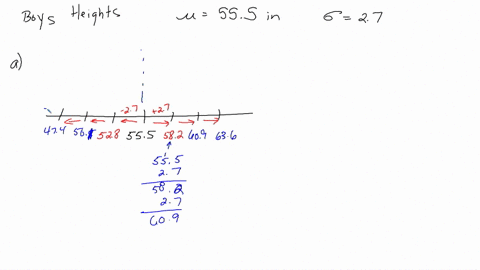 Boys Heights μ = 55.5 in σ = 2.7
a)
-2.7 +2.7
47.4 50.1 52.8 55.5 58.2 60.9 63.6
1
55.5
2.7
58.2
2.7
60.9